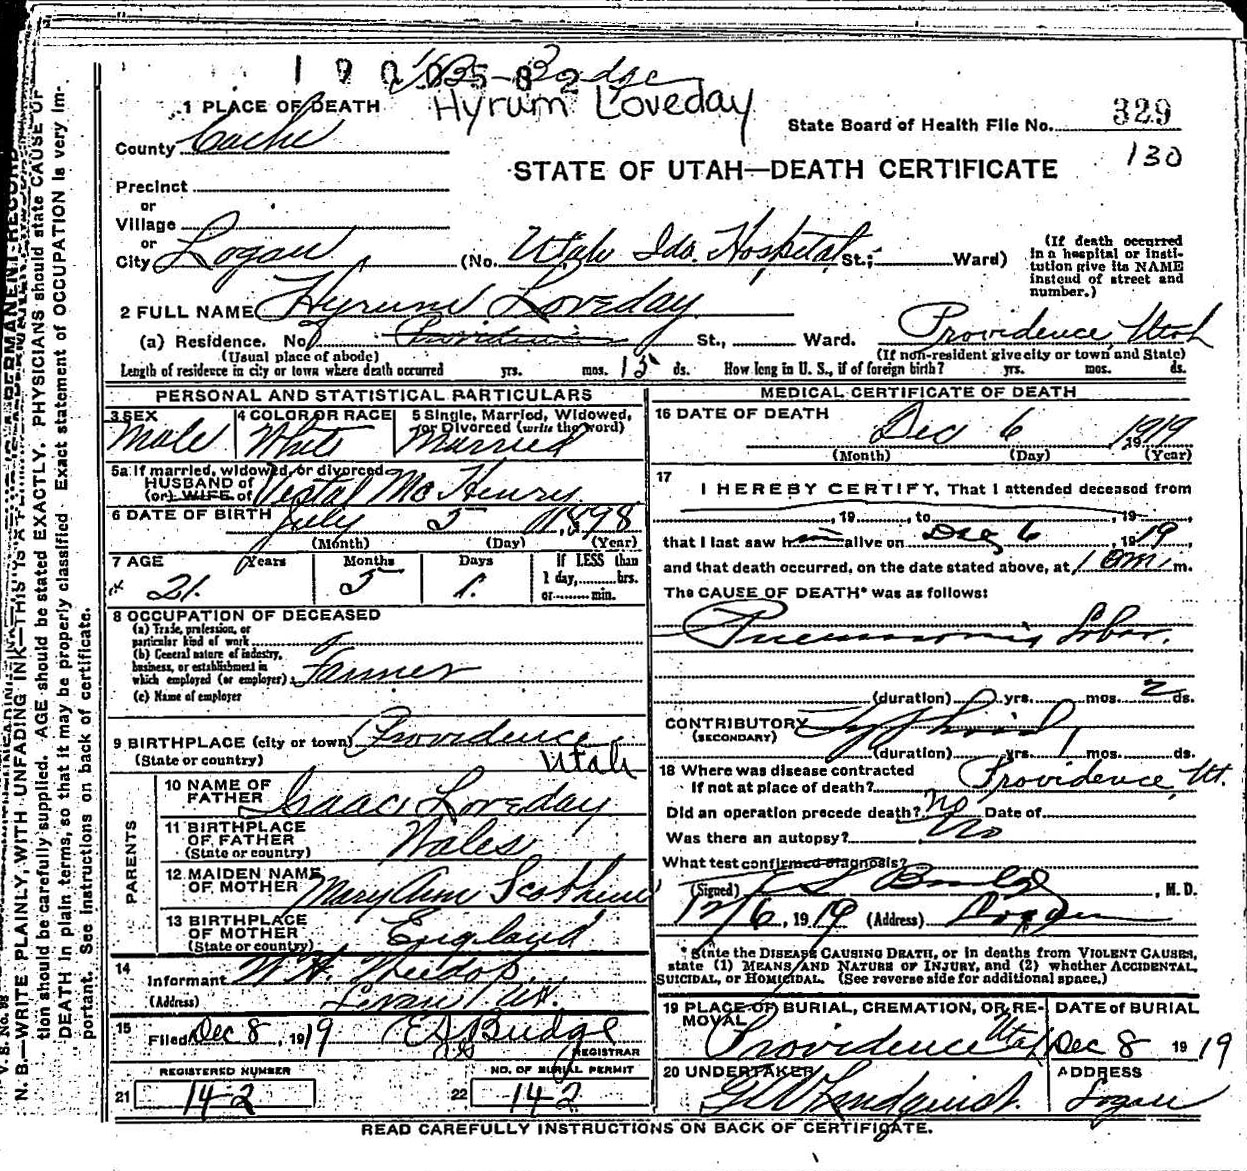 Hyrum Loveday
1 PLACE OF DEATH
State Board of Health File No. 329
130
County Cache
STATE OF UTAH—DEATH CERTIFICATE
Precinct
or
Village
or
City Logan (No. Utah Ida. Hospital St.; Ward)
(If death occurred in a hospital or institution give its NAME instead of street and number.)
2 FULL NAME Hyrum Loveday
(a) Residence. No. Providence St., Ward. Providence Utah
(Usual place of abode) (If non-resident give city or town and State)
Length of residence in city or town where death occurred yrs. mos. 15 ds. How long in U. S., if of foreign birth? yrs. mos. ds.
PERSONAL AND STATISTICAL PARTICULARS
3 SEX Male
4 COLOR OR RACE White
5 Single, Married, Widowed, or Divorced (write the word) Married
5a If married, widowed, or divorced
HUSBAND of
(or) WIFE of Vestal McHenry
6 DATE OF BIRTH July 5 1898
(Month) (Day) (Year)
7 AGE Years Months Days If LESS than
21 5 1 1 day, hrs.
or min.
8 OCCUPATION OF DECEASED
(a) Trade, profession, or
particular kind of work
(b) General nature of industry,
business, or establishment in
which employed (or employer) Farmer
(c) Name of employer
9 BIRTHPLACE (city or town) Providence
(State or country) Utah
PARENTS
10 NAME OF FATHER Isaac Loveday
11 BIRTHPLACE OF FATHER Wales
(State or country)
12 MAIDEN NAME OF MOTHER Mary Ann
13 BIRTHPLACE OF MOTHER England
(State or country)
14 Informant W. H.
(Address) Levan Ut.
15 Filed Dec 8, 1919 E S Budge
REGISTRAR
REGISTERED NUMBER NO. OF BURIAL PERMIT
21 142 22 142
MEDICAL CERTIFICATE OF DEATH
16 DATE OF DEATH Dec 6 1919
(Month) (Day) (Year)
17 I HEREBY CERTIFY, That I attended deceased from
, 19 , to , 19 ,
that I last saw him alive on Dec 6, 1919,
and that death occurred, on the date stated above, at 1 am m.
The CAUSE OF DEATH* was as follows:
Pneumonia Lobar.
(duration) yrs. mos. 2 ds.
CONTRIBUTORY Typhoid
(SECONDARY)
(duration) yrs. 1 mos. ds.
18 Where was disease contracted
If not at place of death? Providence, Ut.
Did an operation precede death? No Date of
Was there an autopsy? No
What test confirmed diagnosis?
(Signed) E S Budge, M. D.
12/6, 1919 (Address) Logan
*State the DISEASE CAUSING DEATH, or in deaths from VIOLENT CAUSES,
state (1) MEANS AND NATURE OF INJURY, and (2) whether ACCIDENTAL,
SUICIDAL, or HOMICIDAL. (See reverse side for additional space.)
19 PLACE OF BURIAL, CREMATION, OR REMOVAL Providence Utah
DATE OF BURIAL Dec 8 1919
20 UNDERTAKER G W Lindquist.
ADDRESS Logan
READ CAREFULLY INSTRUCTIONS ON BACK OF CERTIFICATE.
N. B.—WRITE PLAINLY, WITH UNFADING INK—THIS IS A PERMANENT RECORD
tion should be carefully supplied. AGE should be stated EXACTLY. PHYSICIANS should state CAUSE OF
DEATH in plain terms, so that it may be properly classified. Exact statement of OCCUPATION is very im-
portant. See instructions on back of certificate.